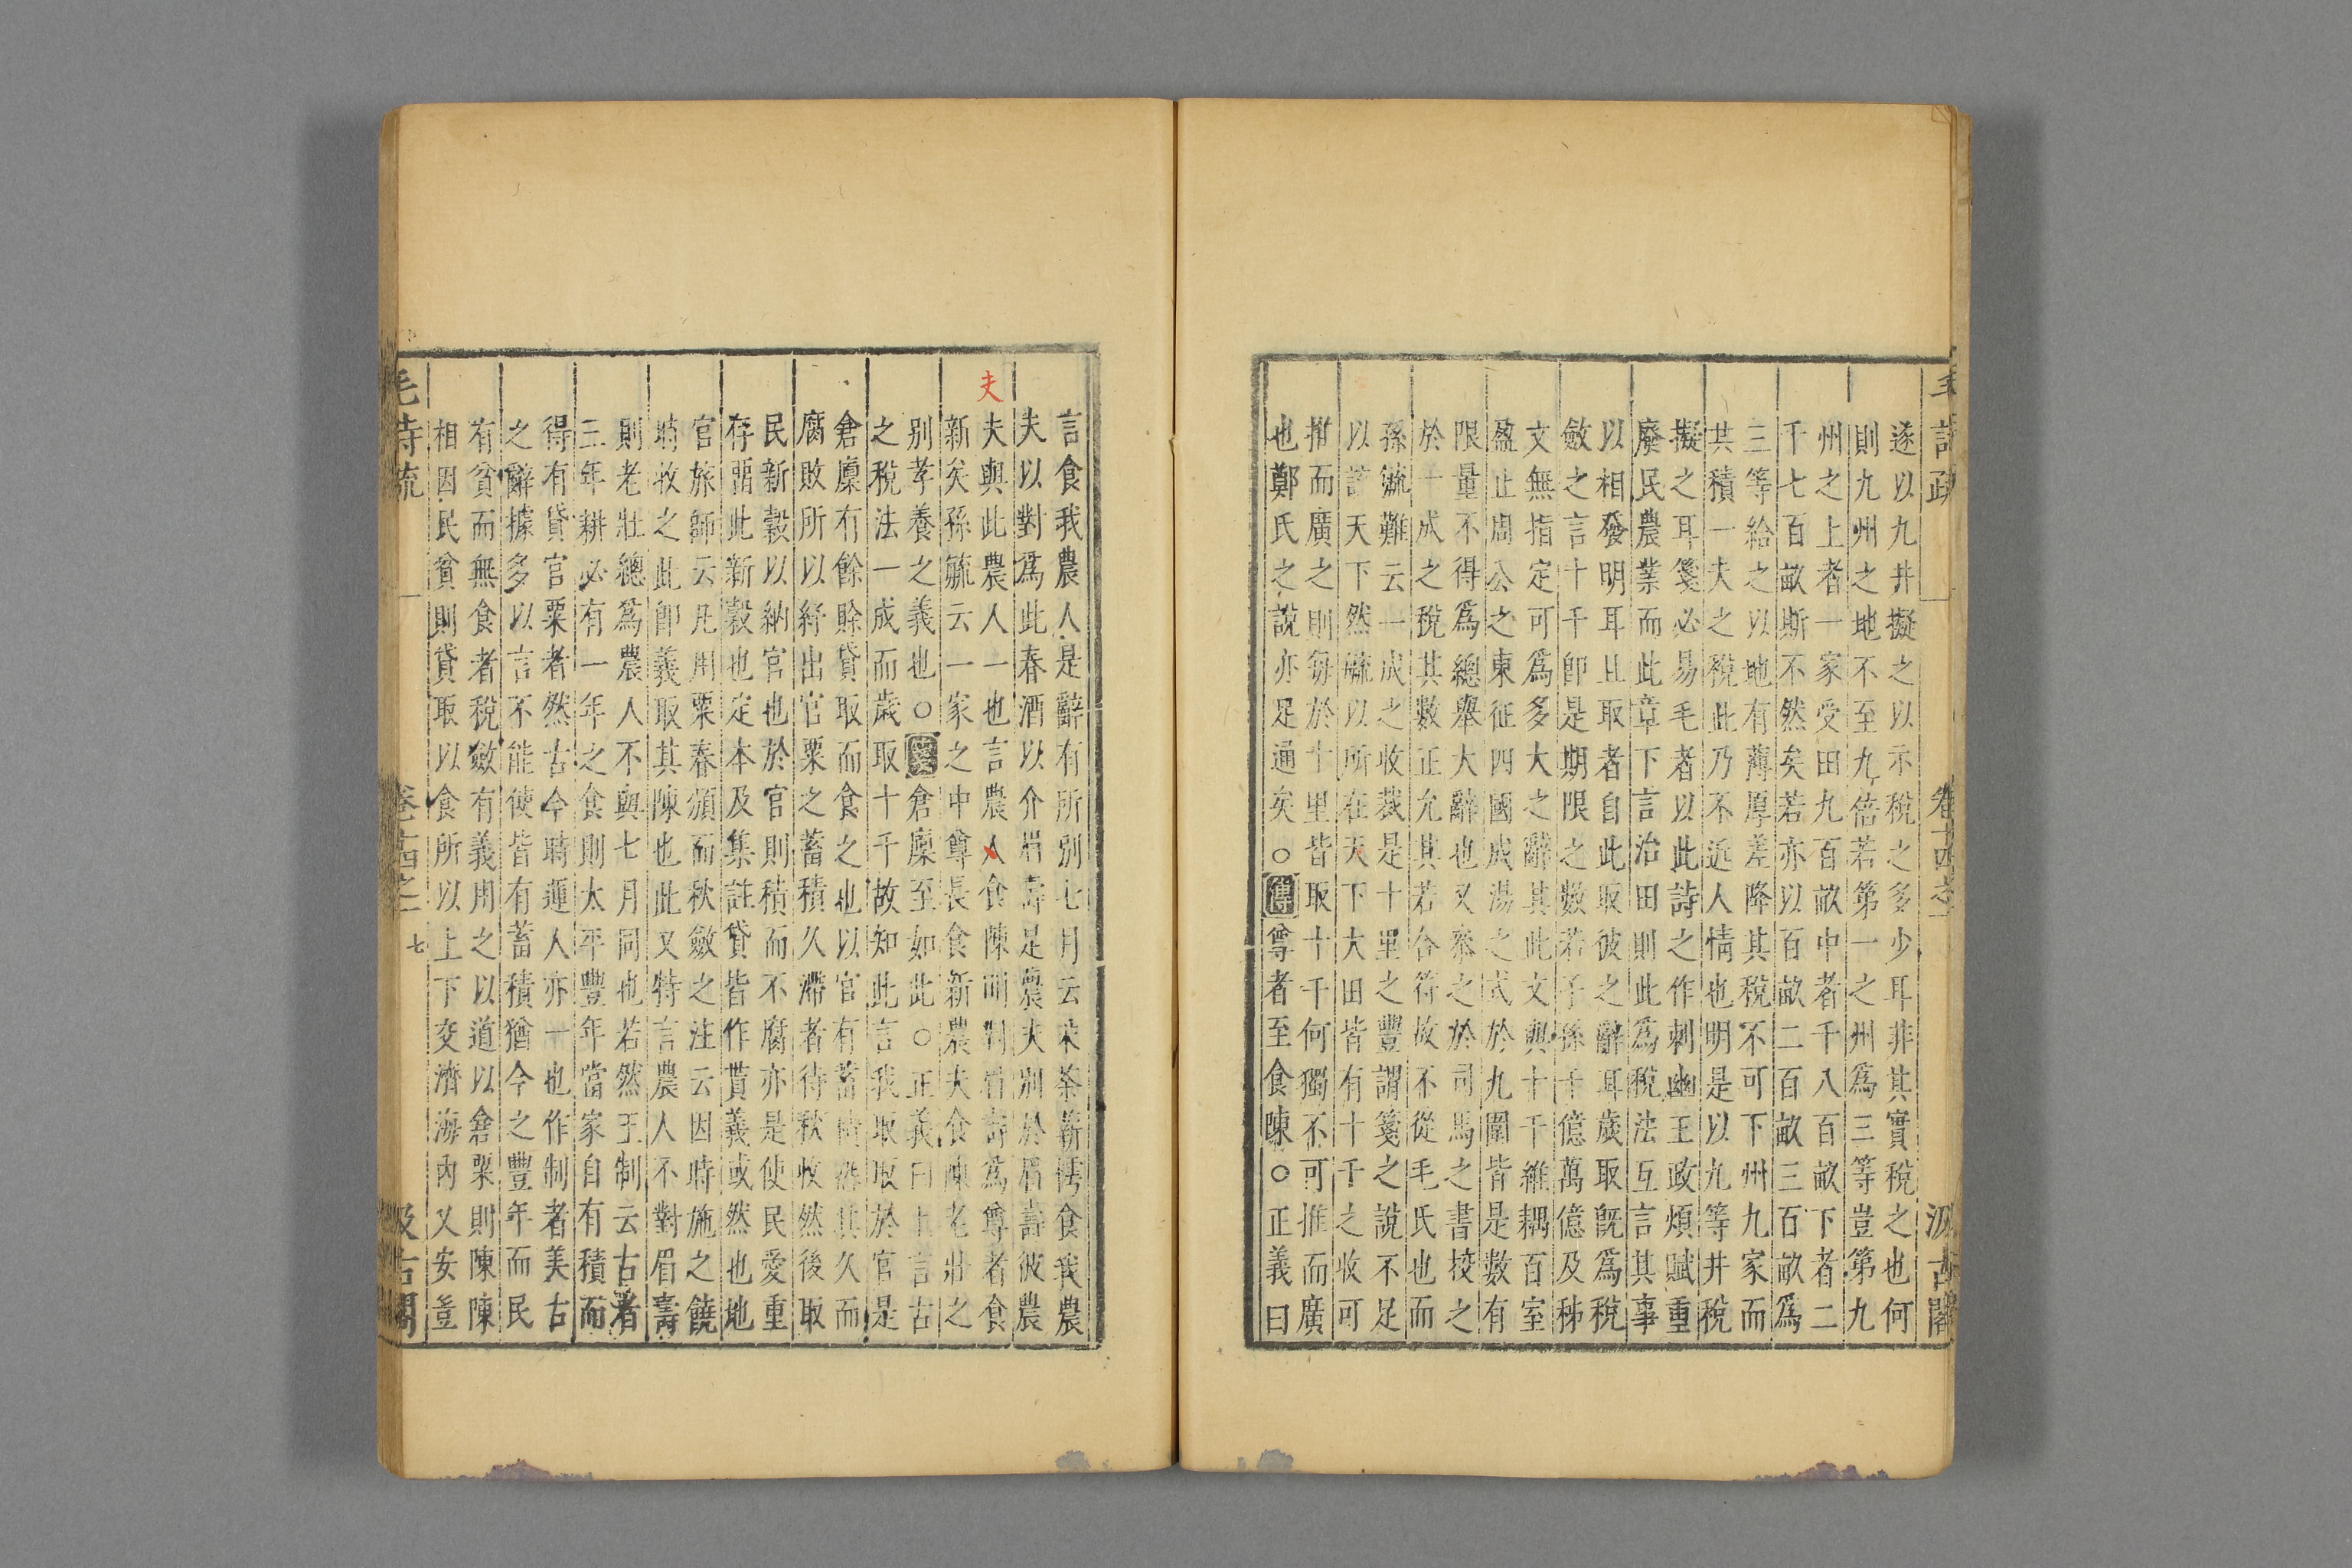 毛詩疏 卷十四之一 汲古閣
遂以九井擬之以示稅之多少耳非其實稅之也何
則九州之地不至九倍若第一之州為三等豈第九
州之上者一家受田九百畝中者千八百畝下者二
千七百畝斯不然矣若亦以百畝二百畝三百畝為
三等給之以地有薄厚差降其稅不可下州九家而
其積一夫之稅此乃不近人情也明是以九等井稅
擬之耳箋必易毛者以此詩之作刺幽王政煩賦重
廢民農業而此章下言治田則此為稅法互言其事
以相發明耳且取者自此取彼之辭耳歲取旣為稅
斂之言十千卽是期限之數若子孫千億萬億及秭
文無指定可為多大之辭其此文與十千維耦百室
盈止周公之東征四國成湯之式於九圍皆是數有
限量不得為總舉大辭也又泰之於司馬之書校之
於十成之稅其數正允其若合符故不從毛氏也而
孫毓難云一成之收裁是十里之豐謂箋之說不足
以該天下然毓以所在天下大田皆有十千之收可
推而廣之則每於十里皆取十千何獨不可推而廣
也鄭氏之說亦足通矣○傳尊者至食陳○正義曰
言食我農人是辭有所別七月云采荼薪樗食我農
夫以對為此春酒以介眉壽是農夫別於眉壽彼農
夫
夫與此農人一也言農人食陳而對眉壽為尊者食
新矣孫毓云一家之中尊長食新農夫食陳老壯之
別孝養之義也○箋倉廩至如此○正義曰上言古
之稅法一成而歲取十千故知此言我取取於官是
倉廩有餘賒貸取而食之也以官有蓄積恐其久而
腐敗所以紓出官粟之蓄積久滯者待秋收然後取
民新穀以納官也於官則積而不腐亦是使民愛重
存畱此新穀也定本及集註貸皆作貰義或然也地
官旅師云凡用粟春頒而秋斂之注云因時施之饒
時收之此卽義取其陳也此又特言農人不對眉壽
則老壯總為農人不與七月同也若然王制云古者
三年耕必有一年之食則太平豐年當家自有積而
得有貸官粟者然古今時運人亦一也作制者美古
之辭據多以言不能使皆有蓄積猶今之豐年而民
有貧而無食者稅斂有義周之以道以倉粟則陳陳
相因民貧則貸取以食所以上下交濟海內乂安豈
毛詩疏 卷十四之一 七 汲古閣